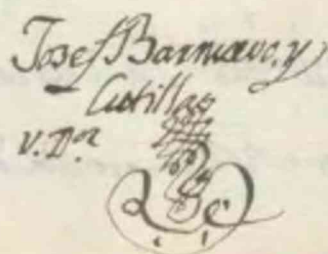 Josef Barnuevo, y
Cutillas
V. Dor